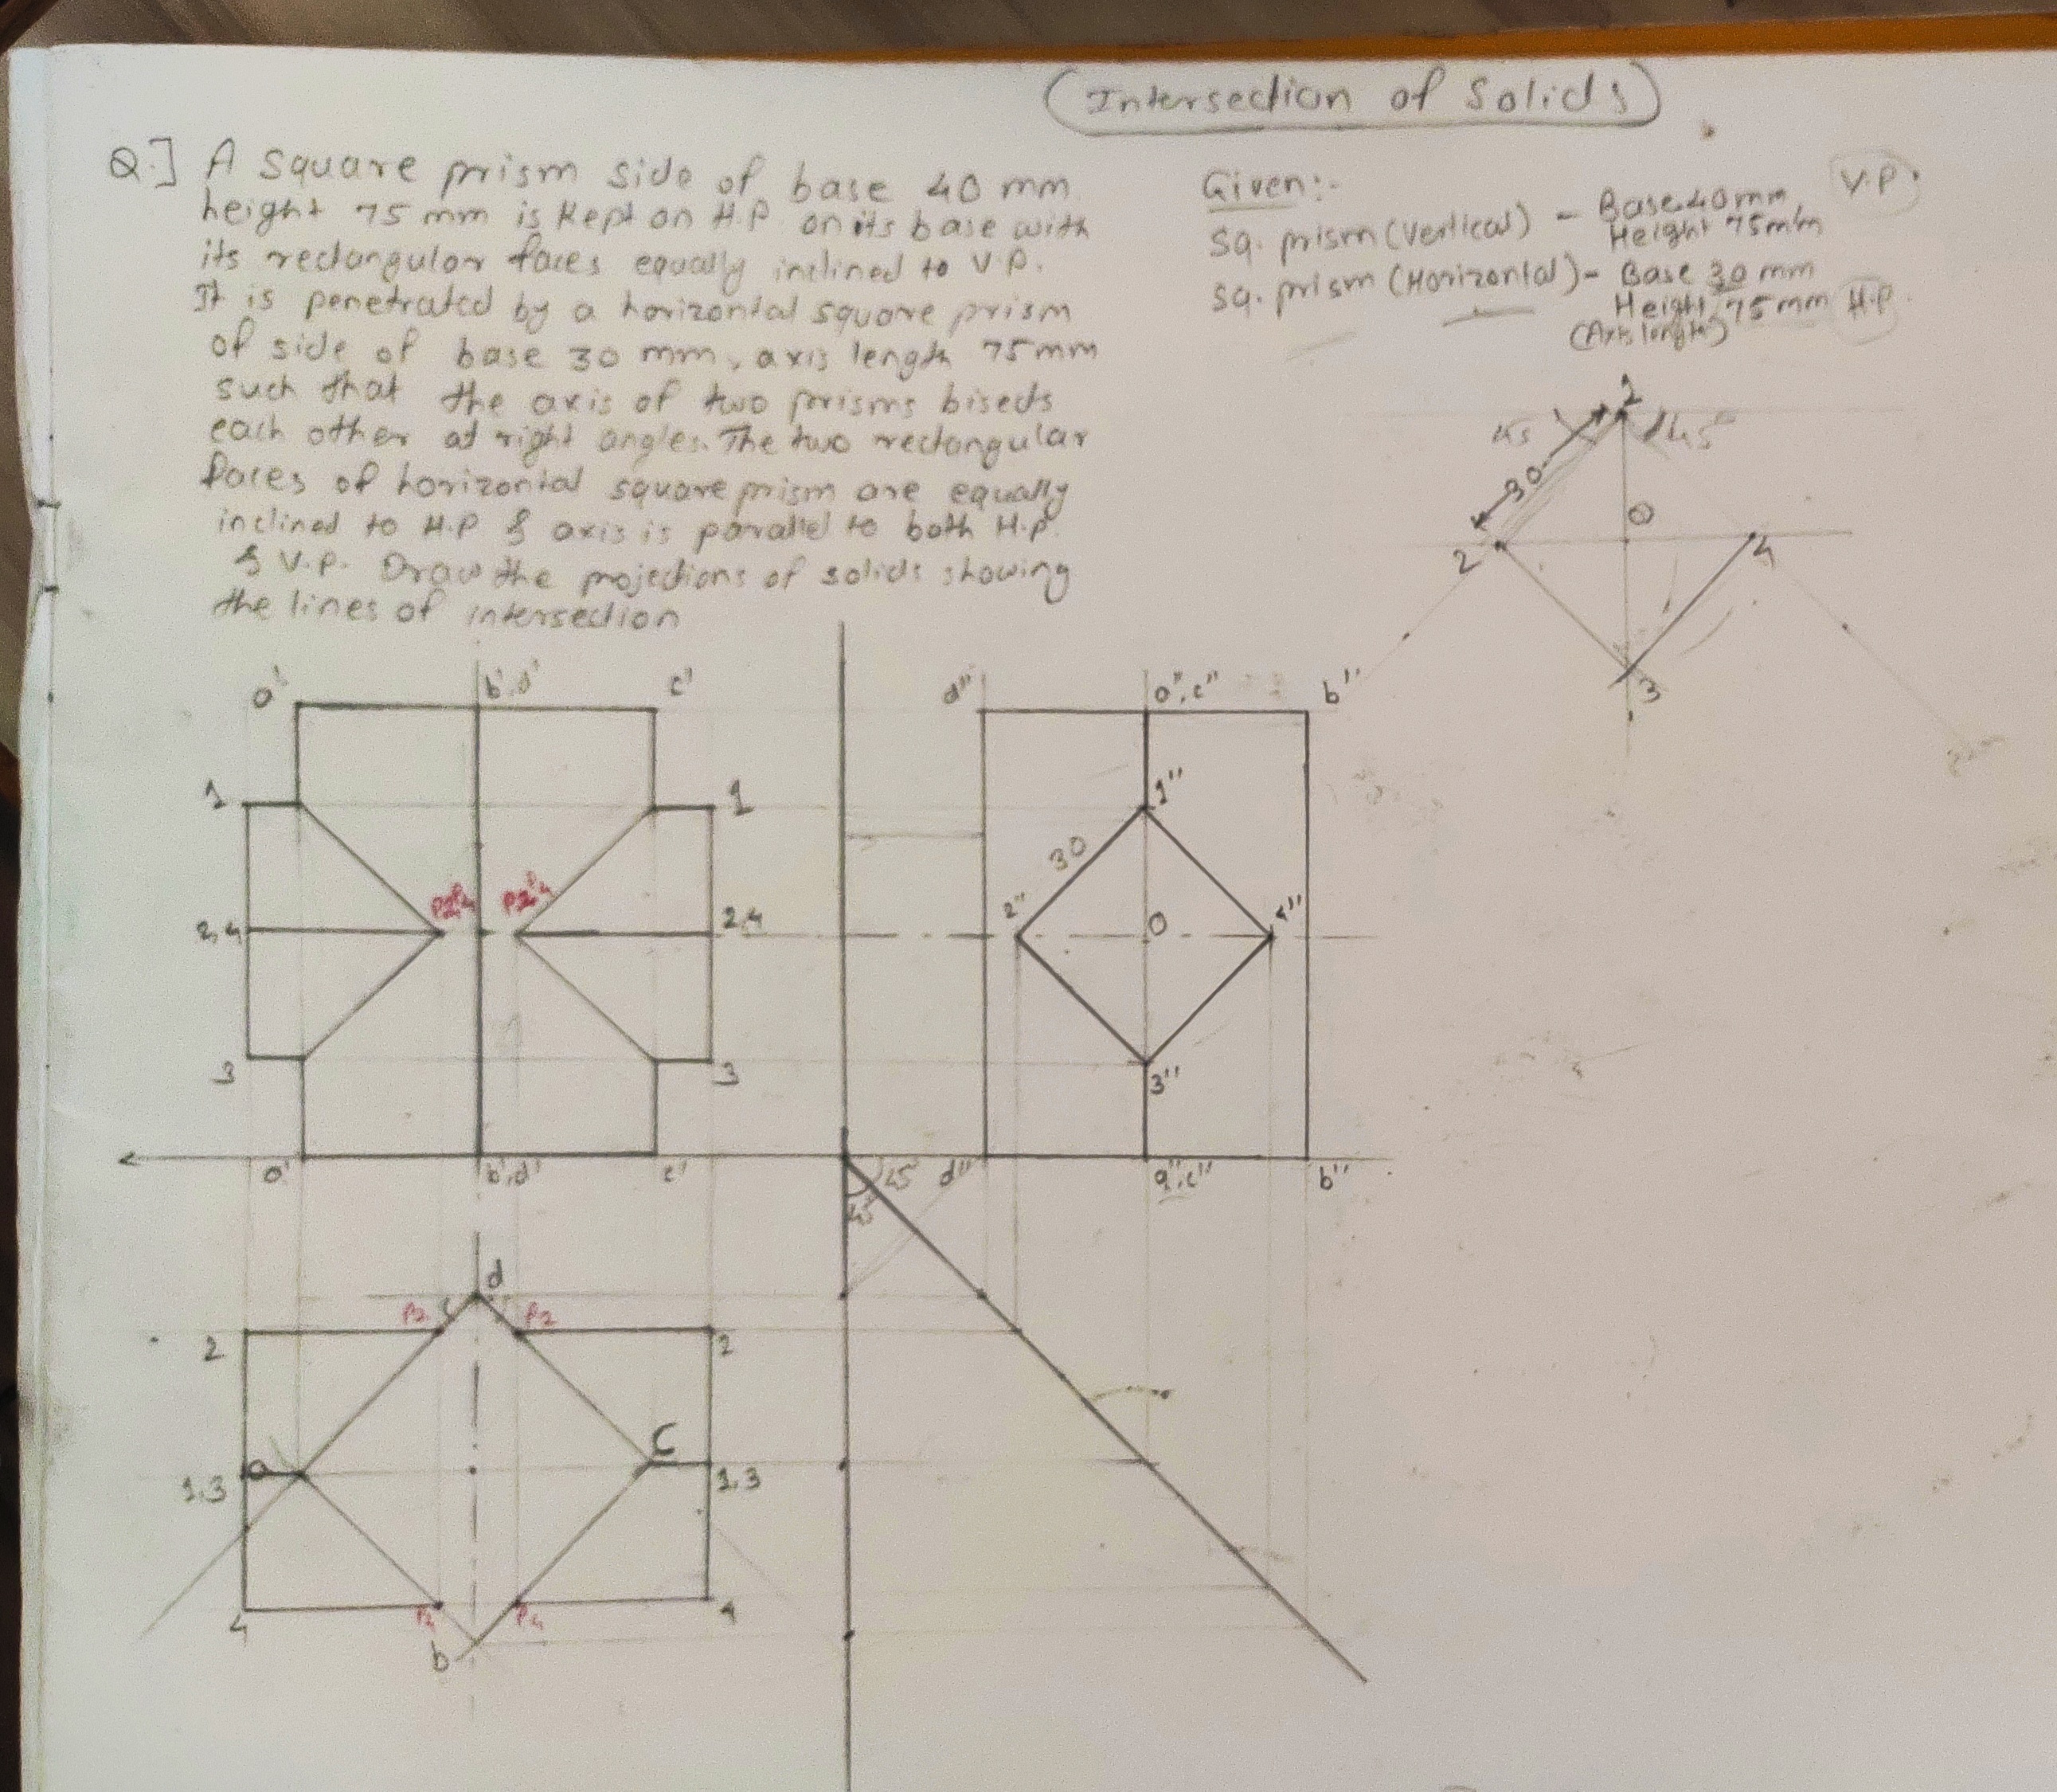 (Intersection of Solids)
Q.] A square prism side of base 40 mm
height 75 mm is kept on H.P on its base with
its rectangular faces equally inclined to V.P.
It is penetrated by a horizontal square prism
of side of base 30 mm, axis length 75mm
such that the axis of two prisms bisects
each other at right angles. The two rectangular
faces of horizontal square prism are equally
inclined to H.P & axis is parallel to both H.P.
& V.P. Draw the projections of solids showing
the lines of intersection
Given:-
Sq. prism (Vertical) - Base 40mm, V.P.
Height 75mm
Sq. prism (Horizontal) - Base 30 mm
Height 75mm H.P.
(Axis length)
1
45
45
30
O
2
4
3
a' b',d' c'
1 1
P2',4 P2',4
2,4 2,4
3 3
a' b',d' c'
d" a",c" b"
1"
30
2" O 4"
3"
d" a",c" b"
45
45
d
P2 P2
2 2
a C
1,3 1,3
4 P4 P4 4
b